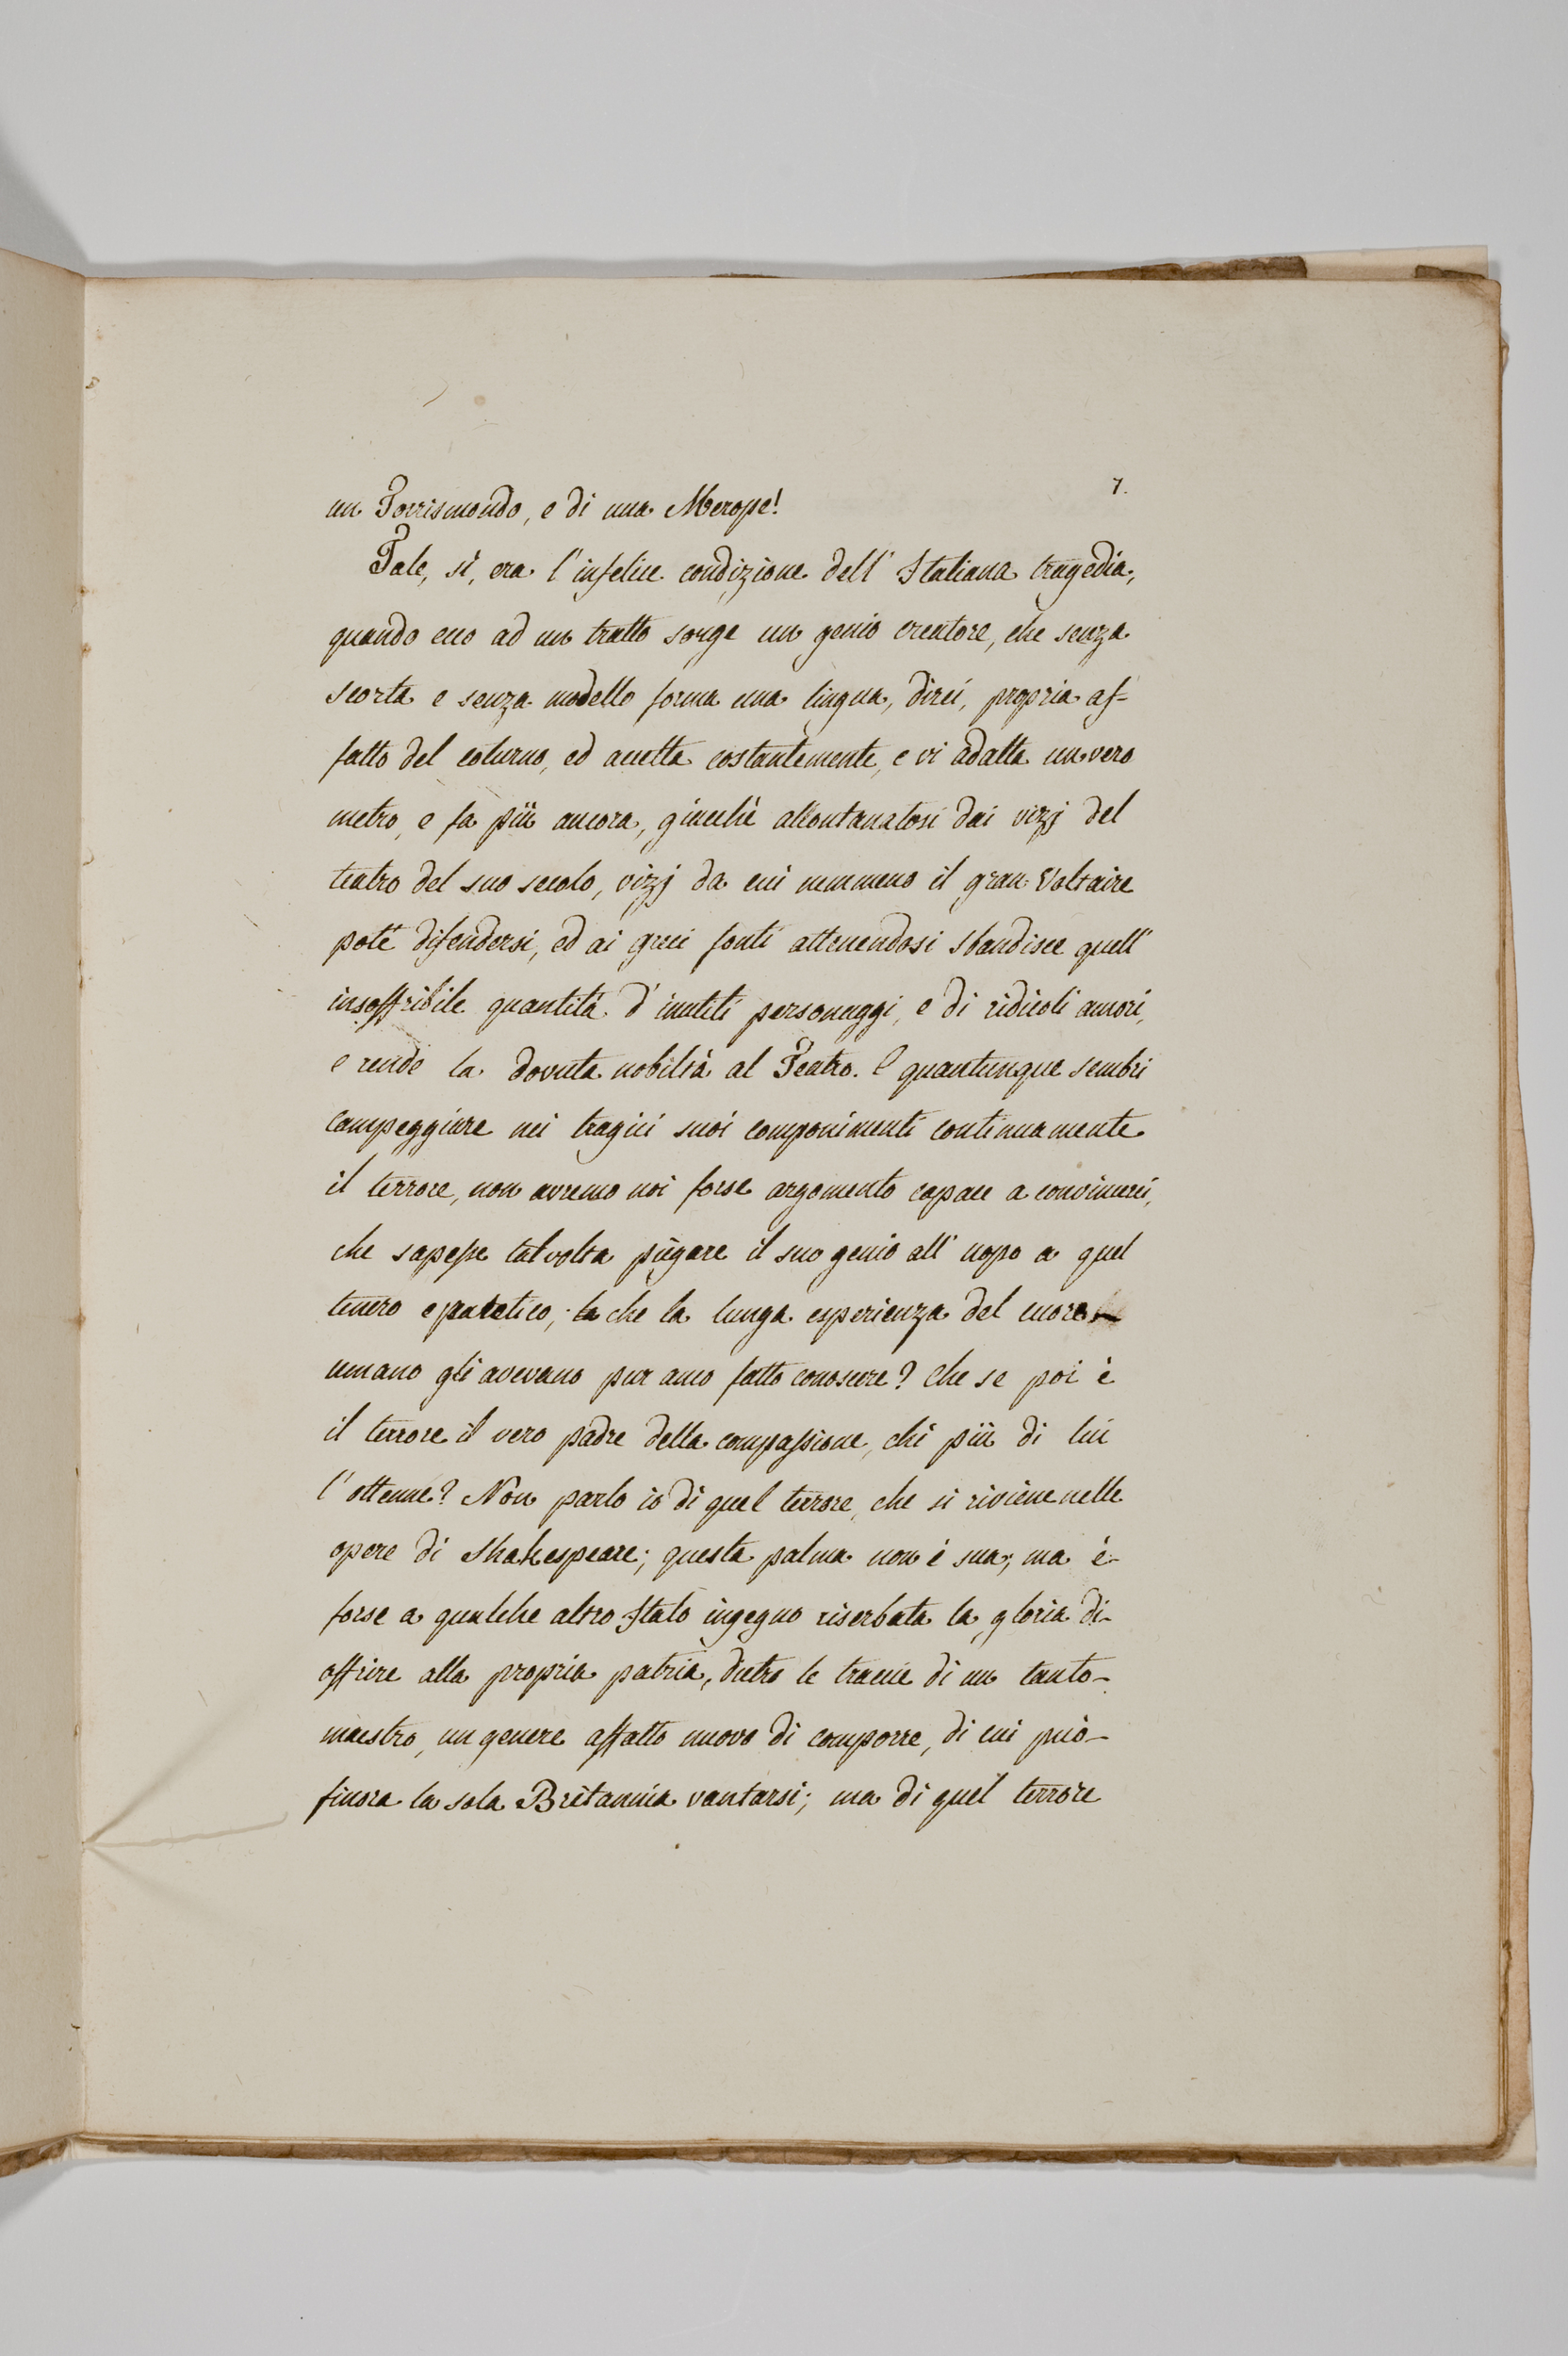 7.
un Torrismondo, e di una Merope!
Tale, sì, era l'infelice condizione dell'Italiana tragedia,
quando ecco ad un tratto sorge un genio creatore, che senza
scorta e senza modello forma una lingua, direi, propria af-
fatto del coturno, ed accetta costantemente, e vi adatta un vero
metro, e fa più ancora, giacchè allontanatosi dai vizj del
teatro del suo secolo, vizj da cui nemmeno il gran Voltaire
potè difendersi, ed ai greci fonti attenendosi sbandisce quell'
insoffribile quantità d'inutili personaggi, e di ridicoli amori,
e rende la dovuta nobiltà al Teatro. E quantunque sembri
campeggiare nei tragici suoi componimenti continuamente
il terrore, non avremo noi forse argomento capace a convincerci,
che sapesse talvolta piegare il suo genio all'uopo a quel
tenero e patetico, che la lunga esperienza del cuore
umano gli avevano pur anco fatto conoscere? Che se poi è
il terrore il vero padre della compassione, chi più di lui
l'ottenne? Non parlo io di quel terrore, che si riviene nelle
opere di Shakespeare; questa palma non è sua, ma è
forse a qualche altro Italo ingegno riserbata la gloria di
offrire alla propria patria, dietro le traccie di un tanto
maestro, un genere affatto nuovo di comporre, di cui può
finora la sola Britannia vantarsi; ma di quel terrore